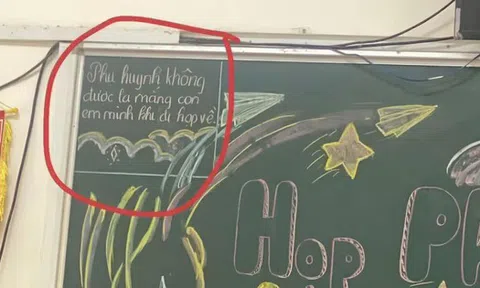 Phụ huynh không
được la mắng con
em mình khi đi họp về.
Họp P